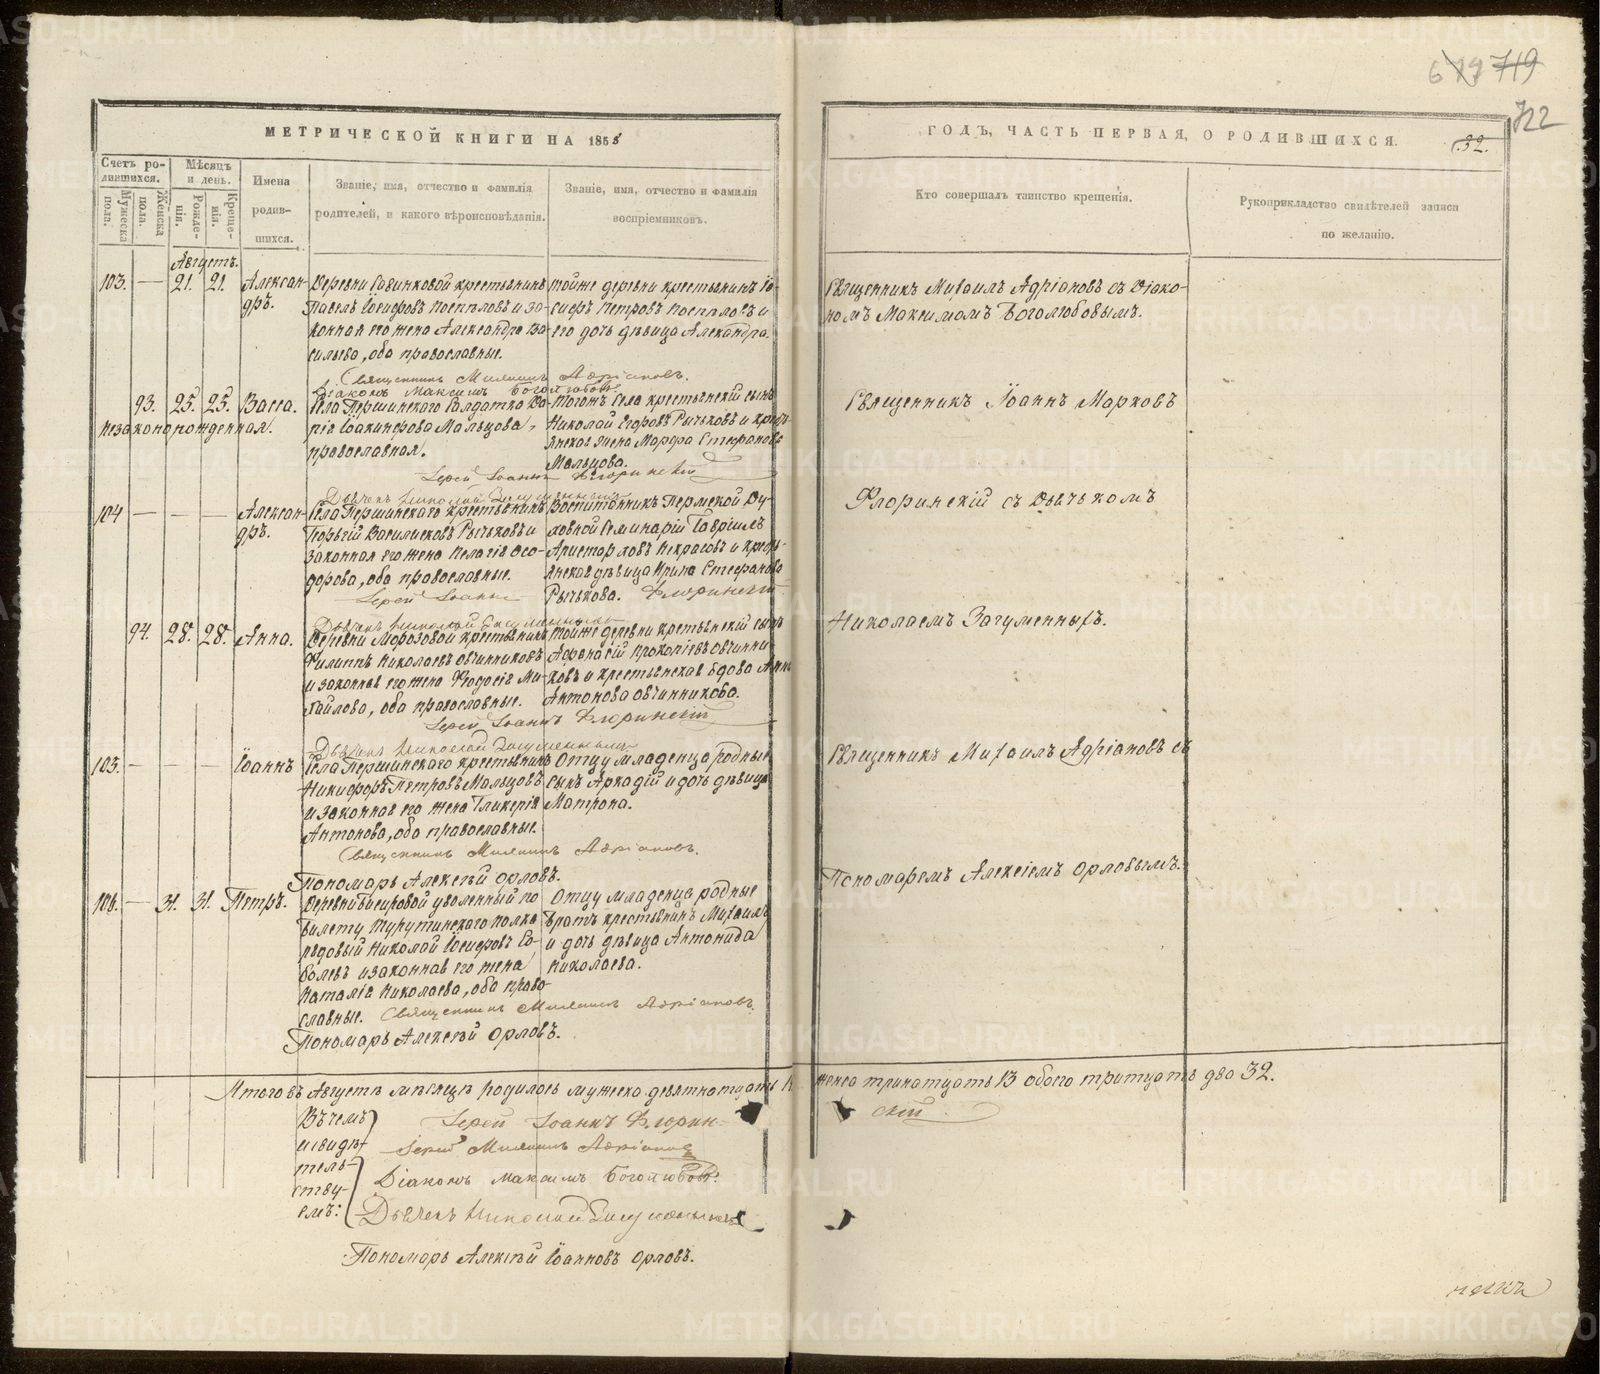 МЕТРИЧЕСКОЙ КНИГИ НА 1855
Счетъ родившихся.
Мужеска пола.
Женска пола.
Мѣсяцъ и день.
Рожденія.
Крещенія.
Имена родившихся.
Званіе, имя, отчество и фамилія
родителей, и какого вѣроисповѣданія.
Званіе, имя, отчество и фамилія
воспріемниковъ.
Августъ.
103. — 21. 21. Александръ.
крестьянинъ
Павелъ Іосифовъ Поспѣловъ и за-
конная его жена Александра Ва-
сильева, оба православные.
тойже деревни крестьянинъ Іо-
сифъ Петровъ Поспѣловъ и
его дочь дѣвица Александра.
Священникъ Михаилъ Адріановъ.
Діаконъ Максимъ Боголюбовъ.
93. 25. 25. Васса.
незаконорожденная.
Села Першинскаго Солдатка Да-
рія Іоакинфова Мальцова,
православная.
Тогожъ Села крестьянскій сынъ
Николай Егоровъ Рычковъ и кресть-
янская жена Марфа Стефанова
Мальцова.
Іерей Іоаннъ Флоринскій
Дьячекъ Николай Загуменныхъ
104 — — — Александръ.
Села Першинскаго крестьянинъ
Георгій Василисковъ Рычковъ и
законная его жена Пелагія Ѳео-
дорова, оба православные.
Воспитанникъ Пермской Ду-
ховной Семинаріи Гавріилъ
Аристарховъ Некрасовъ и кресть-
янская дѣвица Ирина Стефанова
Рычкова.
Іерей Іоаннъ Флоринскій
Дьячекъ Николай Загуменныхъ
94. 28. 28. Анна.
Деревни Морозовой крестьянинъ
Филиппъ Николаевъ Овчинниковъ
и законная его жена Ѳеодосія Ми-
хайлова, оба православные.
тойже деревни крестьянскій сынъ
Афанасій Прокопіевъ Овчинни-
ковъ и крестьянская вдова Анна
Антонова Овчинникова.
Іерей Іоаннъ Флоринскій
Дьячекъ Николай Загуменныхъ
105. — — — Іоаннъ
Села Першинскаго крестьянинъ
Никифоръ Петровъ Мальцовъ
и законная его жена Гликерія
Антонова, оба православные.
Отцу младенца родные
сынъ Аркадій и дочь дѣвица
Матрона.
Священникъ Михаилъ Адріановъ.
Пономарь Алексѣй Орловъ.
106. — 31. 31. Петръ.
уволенный по
билету Турутинскаго полка
рядовый Николай Іосифовъ Со-
болевъ и законная его жена
Наталія Николаева, оба право-
славные.
Отцу младенца родные
братъ крестьянинъ Михаилъ
и дочь дѣвица Антонида
Николаева.
Священникъ Михаилъ Адріановъ.
Пономарь Алексѣй Орловъ.
Итого въ Августѣ мѣсяцѣ родилось мужеска девятнатцать
Въ чемъ
и свидѣ-
тель-
ству-
емъ:
Іерей Іоаннъ Флорин-
Іерей Михаилъ Адріановъ
Діаконъ Максимъ Боголюбовъ.
Дьячекъ Николай Загуменныхъ
Пономарь Алексѣй Іоанновъ Орловъ.
719
722
32.
ГОДЪ, ЧАСТЬ ПЕРВАЯ, О РОДИВШИХСЯ.
Кто совершалъ таинство крещенія.
Рукоприкладство свидѣтелей записи
по желанію.
Священникъ Михаилъ Адріановъ съ Діако-
номъ Максимомъ Боголюбовымъ.
Священникъ Іоаннъ Марковъ
Флоринскій съ Дьячькомъ
Николаемъ Загуменныхъ.
Священникъ Михаилъ Адріановъ съ
Пономаремъ Алексіемъ Орловымъ.
женска тринатцать 13 обоего тритцать два 32.
скій
METRIKI.GASO-URAL.RU